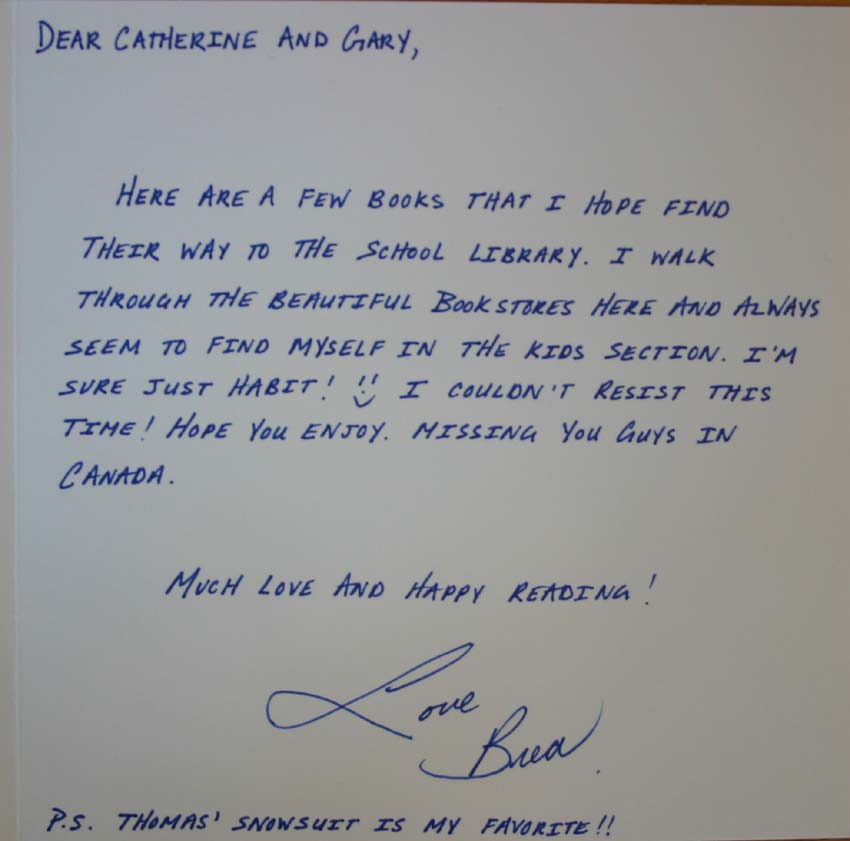 DEAR CATHERINE AND GARY,
HERE ARE A FEW BOOKS THAT I HOPE FIND
THEIR WAY TO THE SCHOOL LIBRARY. I WALK
THROUGH THE BEAUTIFUL BOOKSTORES HERE AND ALWAYS
SEEM TO FIND MYSELF IN THE KIDS SECTION. I'M
SURE JUST HABIT! !! I COULDN'T RESIST THIS
TIME! HOPE YOU ENJOY. MISSING YOU GUYS IN
CANADA.
MUCH LOVE AND HAPPY READING!
Love
Brea
P.S. THOMAS' SNOWSUIT IS MY FAVORITE!!